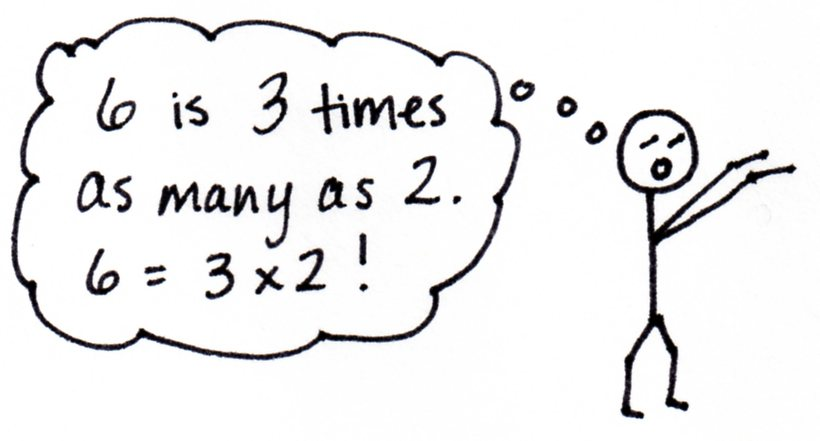 6 is 3 times
as many as 2.
6 = 3 x 2 !